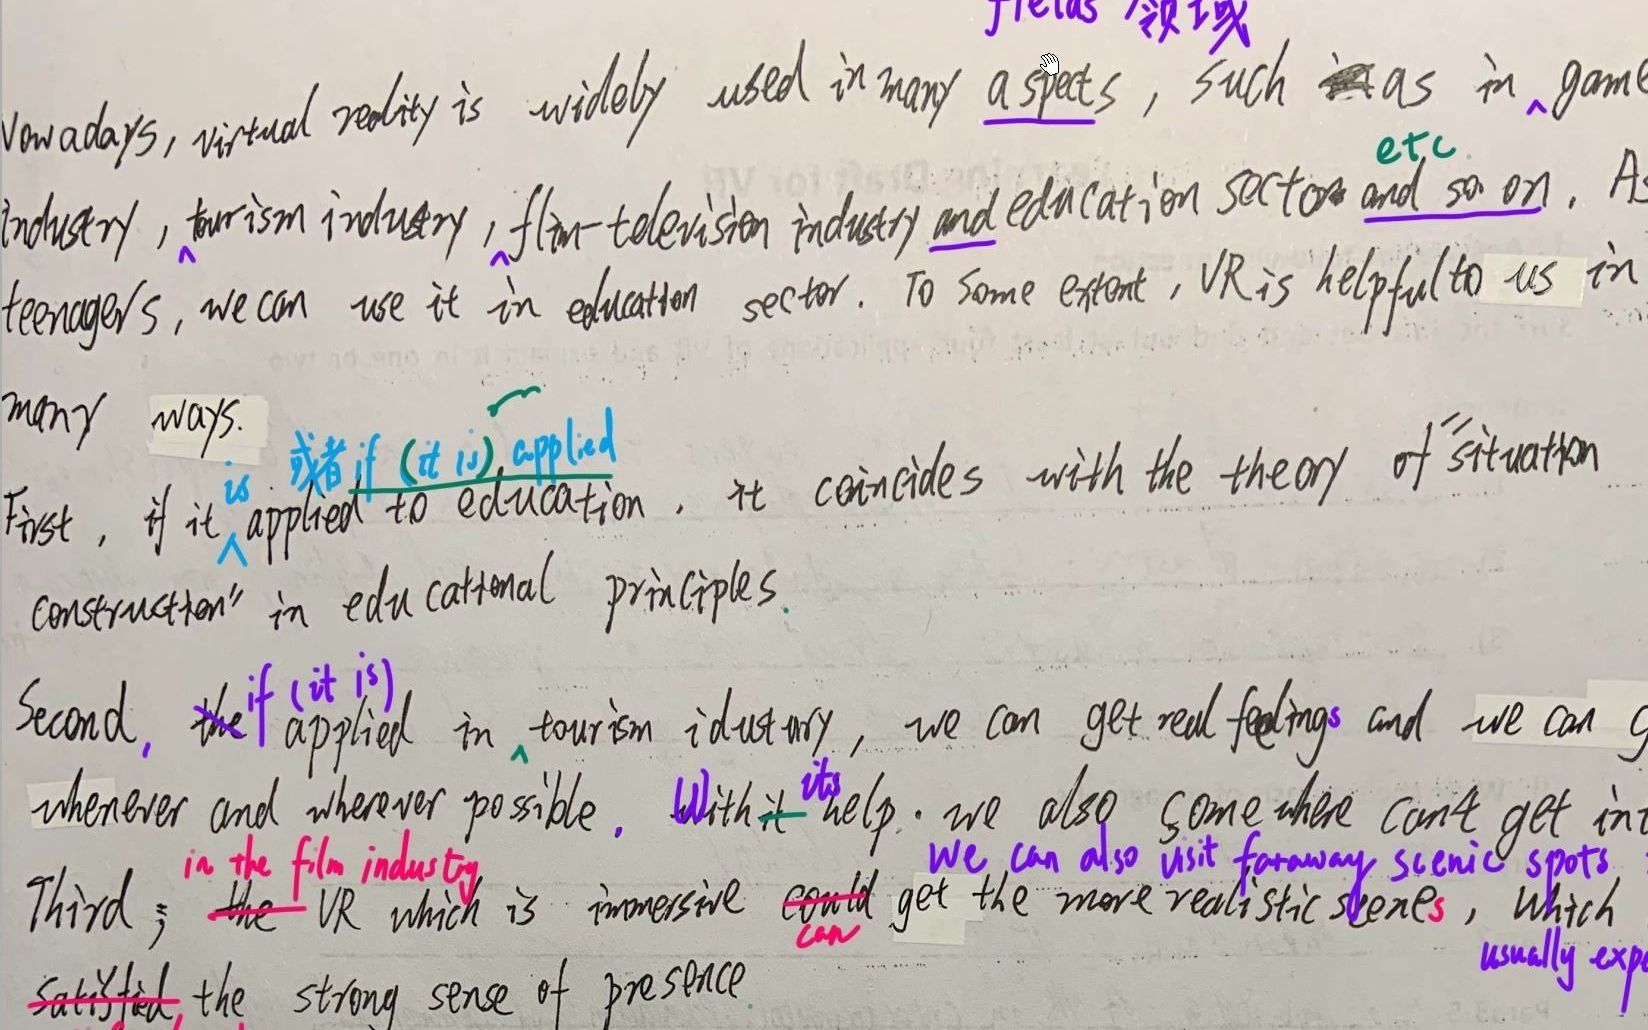 fields 领域
Nowadays, virtual reality is widely used in many aspects, such as in ^ game
industry, ^ tourism industry, ^ flim-television industry and education sector and so on. As
etc
teenagers, we can use it in education sector. To some extent, VR is helpful to us in
many ways.
is 或者 if (it is) applied
First, if it ^ applied to education, it coincides with the theory of "situation
construction" in educational principles.
if (it is)
Second, the applied in ^ tourism idustry, we can get real feelings and we can g
whenever and wherever possible. With it its help. we also somewhere can't get int
in the film industry we can also visit faraway scenic spots,
Third, the VR which is immersive could get the more realistic scenes, which
can usually expe
satisfied the strong sense of presence